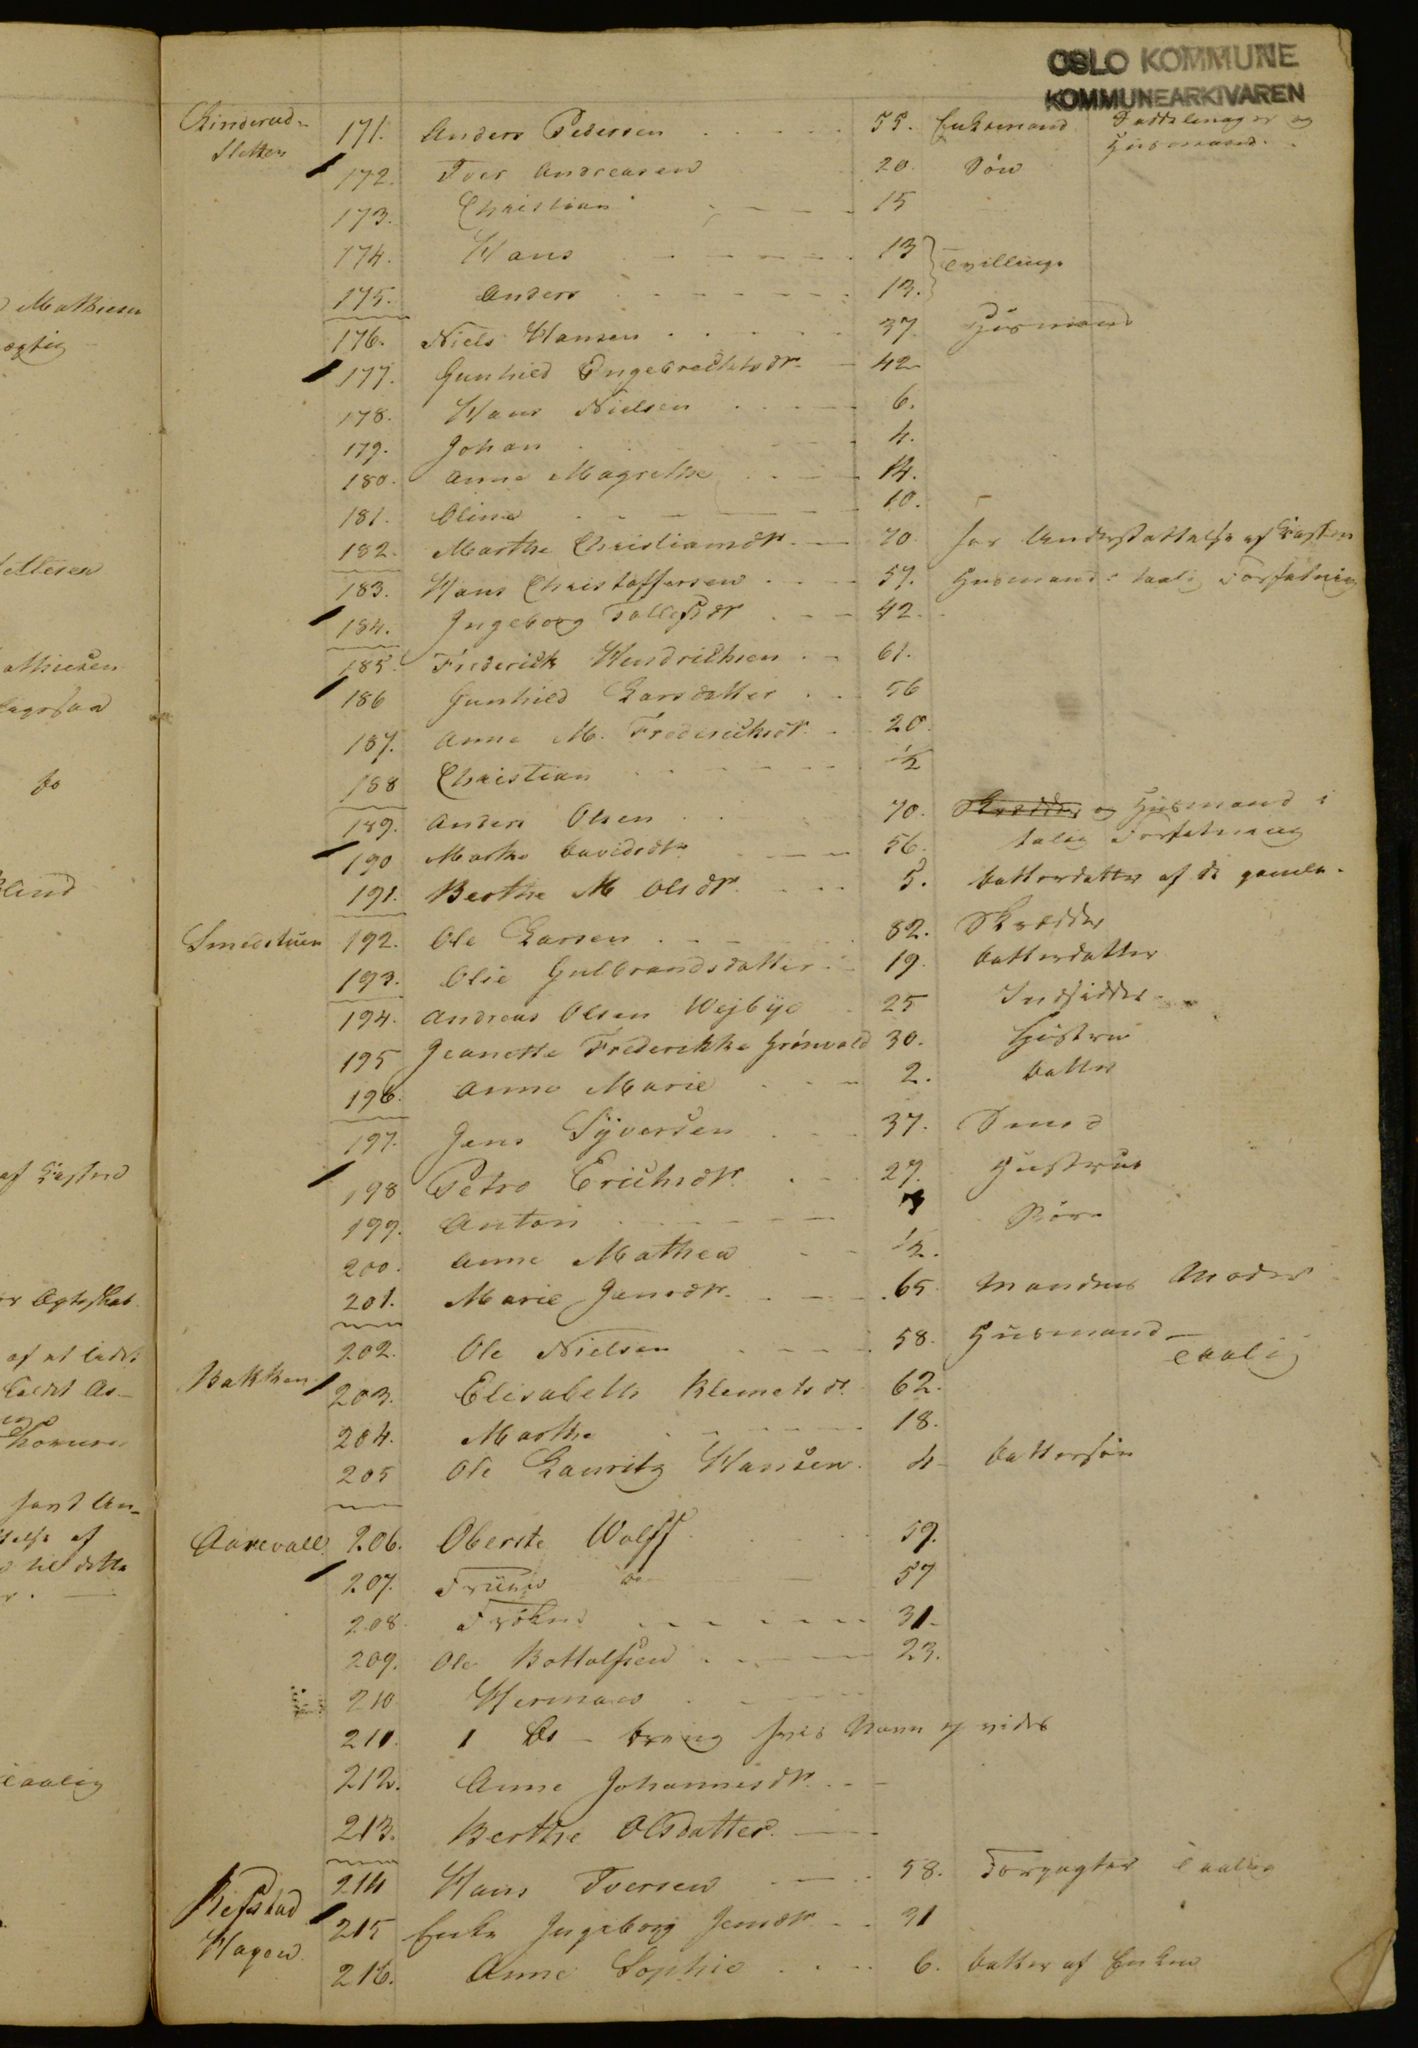 OSLO KOMMUNE
KOMMUNEARKIVAREN
Linderud- 171. Anders Pedersen 55. Enkemand Sadelmager og
Sletten Husmand.
172. Iver Andreasen 20. Søn
173. Christian 15
174. Hans 13
Tvillinge
175. Anders 13.
176. Niels Hansen 37 Husmand
177. Gunhild Engebrechtsdr 42
178. Hans Nielsen 6.
179. Johan 4.
180. Anne Magrethe 14.
181. Oline 10.
182. Marthe Christiansdr 70 har Understøttelse af
183. Hans Christoffersen 57. Husmand taalig Forfatning
184. Ingeborg Tollefsdr 42.
185. Frederick Hendrichsen 61.
186 Gunhild Larsdatter 56
187. Anne M. Fredericksdr. 20.
188 Christian 1/2
189. Anders Olsen 70. Skrædder og Husmand i
190 Marthe Davidsdr 56. talig Forfatning
191. Berthe M Olsdr. 5. Datterdatter af de gamle.
Smedstuen 192. Ole Larsen 82. Skrædder
193. Olie Gulbrandsdatter 19. Datterdatter
194. Andreas Olsen Wejbye 25 Indsidder
195 Jeanette Frederikke Grönvold 30. Hustru
196. Anne Marie 2. Datter
197. Jens Syversen 37. Smed
198 Petro Erichsdr. 27. Hustrue
199. Anton Børn
200. Anne Mathea 1/2.
201. Marie Jensdr. 65 Mandens Moder
202. Ole Nielsen 58. Husmand
taalig
Bakken 203. Elisabeth Klemetsdr. 62.
204. Marthe 18.
205 Ole Lauritz Hansen 4 Dattersøn
Aarevall 206. Oberste Wolff 59.
207. Fruen 57
208. Frøken 31
209. Ole Bottolfsen 23.
210 Herman
211. 1 Do - Dreng hvis Navn ej vides
212. Anne Johannesdr.
213. Berthe Olsdatter.
214 Hans Iversen 58. Forpagter taalig
Refstad
215 Enke Ingeborg Jensdr 31
Hagen
216. Anne Sophie 6. Datter af Enken
Mathisen
athiesen